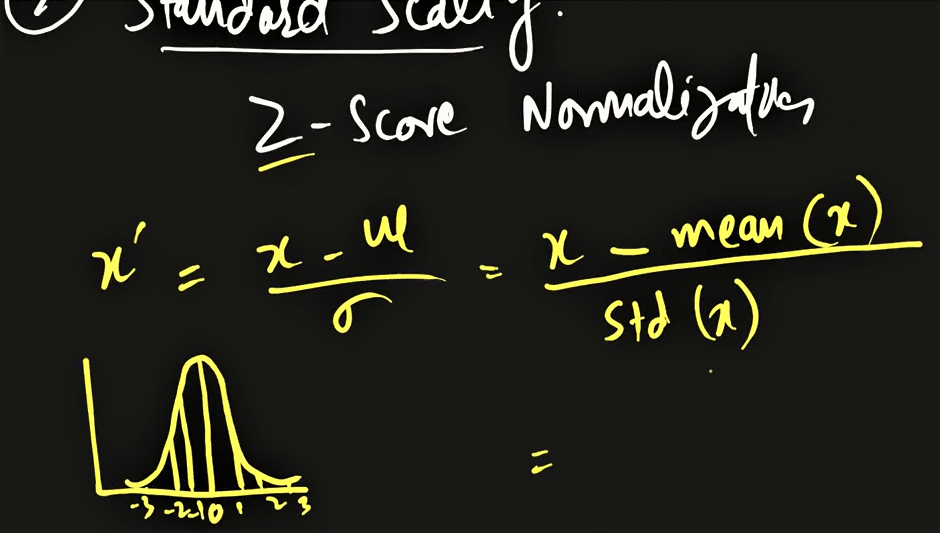 Standard Scaling.
Z-Score Normalization
x' = x - μ / σ = x - mean (x) / std (x)
=
-3 -2 -1 0 1 2 3